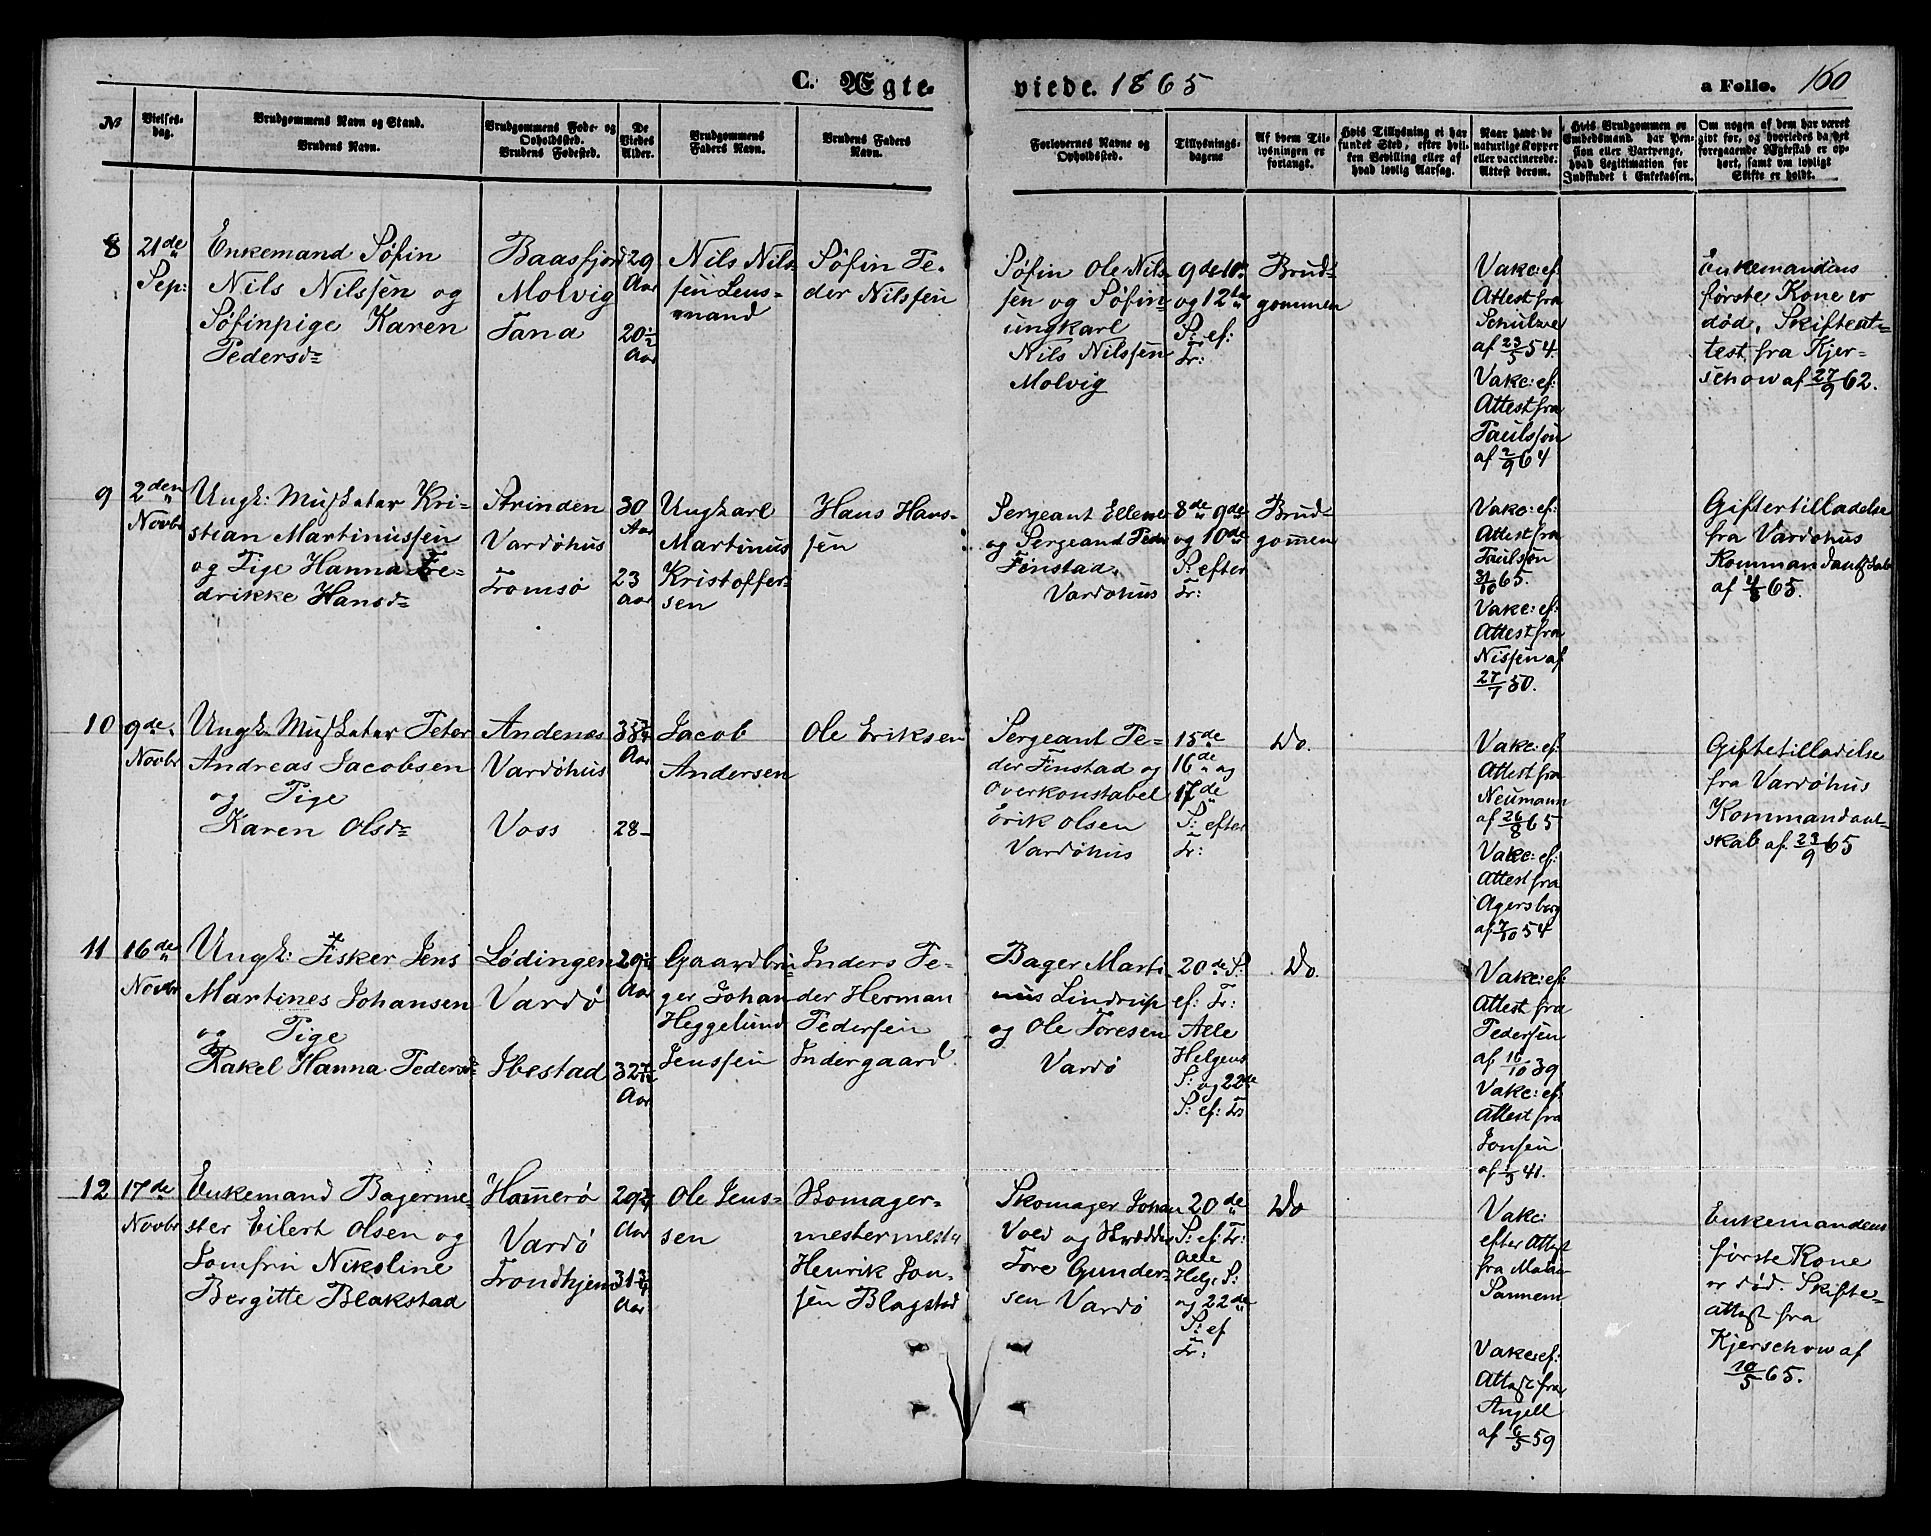 C. Ægteviede. 1865
a Folio. 160
№
Vielsesdag.
Brudgommens Navn og Stand.
Brudens Navn.
Brudgommens Føde- og Opholdssted.
Brudens Fødested.
De Viedes Alder.
Brudgommens Faders Navn.
Brudens Faders Navn.
Forlovernes Navne og Opholdssted.
Tillysningsdagene
Af hvem Tillysningen er forlangt.
Hvis Tillysning ei har fundet Sted, efter hvilken Bevilling eller af hvad lovlig Aarsag.
Naar havt de naturlige Kopper eller vaccinerede. Attest derom.
Hvis Brudgommen er Embedsmand, har Pension eller Vartpenge, hvad Legitimation for Indskudet i Enkekassen.
Om nogen af dem har været givt før, og hvorledes da det foregaaende Ægteskab er ophørt, samt om lovligt Skifte er holdt.
8
21de
Sep:
Enkemand Søfin
Nils Nilssen og
Søfinpige Karen
Pedersd=
Baasfjord
Molvig
Tana
29
Aar
20½
Aar
Nils Nils-
sen Lens-
mand
Søfin Pe-
der Nilssen
Søfin Ole Nils-
sen og Søfin-
ungkarl
Nils Nilssen
Molvig
9de 10de
og 12te
S: ef:
Tr:
Brud-
gommen
Vake: ef:
Attest fra
Schulze
af 23/5 54.
Vake: ef:
Attest fra
Paulsson
af 2/9 64
Enkemandens
første Kone er
død. Skifteat-
test fra Kjer-
schow af 27/9 62.
9
2den
Novbr
Ungk: Musketer Kri-
stian Martinussen
og Pige Hanna Fre-
drikke Hansd=
Strinden
Vardøhus
Tromsø
30
Aar
23
Aar
Ungkarl
Martinus
Kristoffer-
sen
Hans Hans-
sen
Sergeant Ellene
og Sergeand Peder
Finstad,
Vardøhus
8de 9de
og 10de
S: efter
Tr:
Brud-
gommen
Vake: ef:
Attest fra
Paulsson
31/10 65.
Vake: ef:
Attest fra
Nissen af
27/7 50.
Giftertilladelse
fra Vardøhus
Kommandantskab
af 4/8 65.
10
9de
Novbr
Ungk. Musketer Peter
Andreas Jacobsen
og Pige
Karen Olsd=
Andenæs
Vardøhus
Voss
Aar
28-
Jacob
Andersen
Ole Eriksen
Sergeant Pe-
der Finstad og
Overkonstabel
Erik Olsen
Vardøhus
15de
16de og
17de
S: efter
Tr:
Do.
Vake: ef:
Attest fra
Neumann
af 26/8 65
Vake: ef:
Attest fra
Agersborg
af 7/10 54
Giftetilladelse
fra Vardøhus
Kommandant-
skab af 23/9 65
11
16de
Novbr
Ungk: Fisker Jens
Martines Johansen
og Pige
Rakel Hanna Pedersd=
Lødingen
Vardø
Ibestad
Aar
Aar
Gaardbru-
ger Johan
Heggelund
Jenssen
Inders Pe-
der Herman
Pedersen
Indergaard
Bager Marti-
nus Lindrup
og Ole Toresen
Vardø
20de S:
ef: Tr:
Alle
Helgens
S: og 22de
S: ef: Tr
Do.
Vake: ef:
Attest fra
Pedersen
af 16/10 39
Vake: ef:
Attest fra
Jonsen
41.
12
17de
Novbr
Enkemand Bagerme-
ster Eilert Olsen og
Jomfru Nikoline
Bergitte Blakstad
Hammerø
Vardø
Trondhjem
Aar
Aar
Ole Jens-
sen
Skomager-
mestermester
Henrik Jon-
sen Blagstad
Skomager Johan
Voed og Skrædder
Tore Gunder-
sen Vardø
20de
S: ef: Tr:
Alle
Helg: S:
og 22de
S: ef
Tr:
Do
Vake:
efter Attest
fra
Sannem
Vake: ef:
Attest fra
Angell
af 6/5 59
Enkemandens
første Kone
er død. Skifte-
attest fra
Kjerschow af
10/5 65.